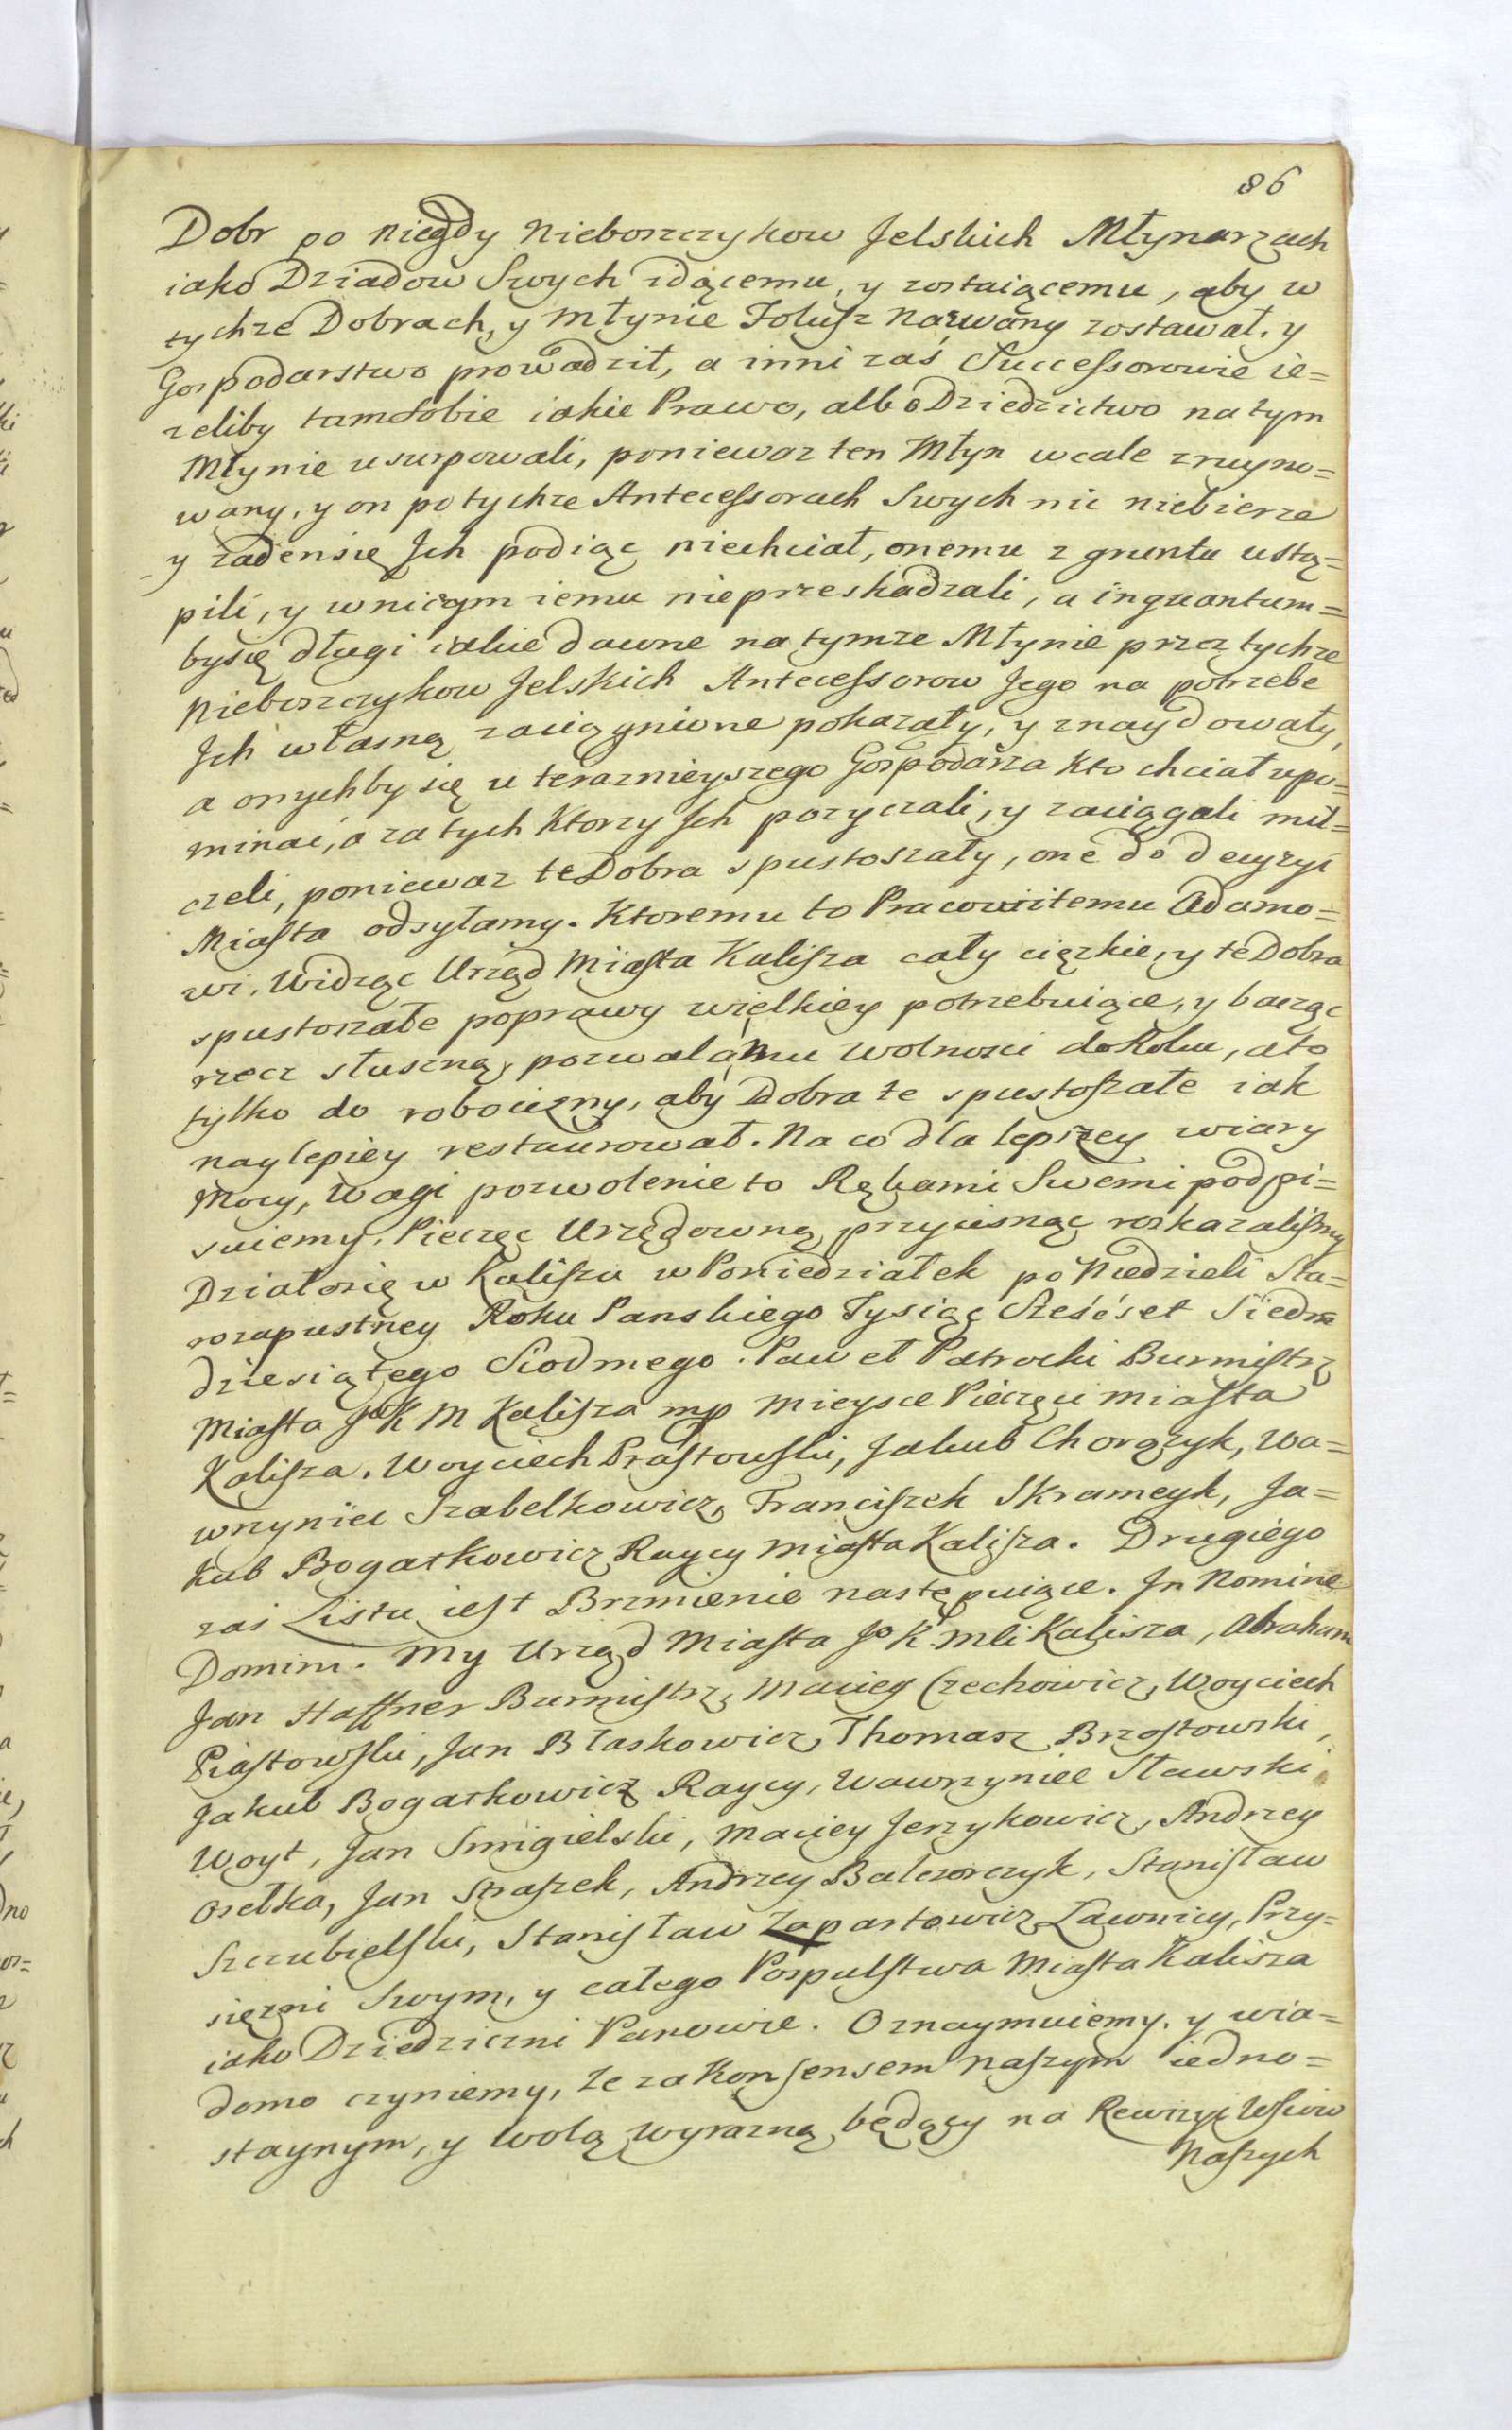 86
Dobr po niegdy Nieboszczykow Jelskich Młynarzach
iako Dziadow Swych idącemu, y zostaiącemu, aby w
tychże Dobrach, y Młynie Folusz Nazwany zostawał, y
Gospodarstwo prowadził, a inni zaś Successorowie ie=
zeliby tam sobie iakie Prawo, albo Dziedzictwo na tym
Młynie usurpowali, poniewaz ten Młyn wcale zruyno=
wany, y on po tychze Antecessorach Swych nic niebierze
y zadensię Jch podiąc niechciał, onemu z gruntu ustą=
pili, y wniczym iemu nieprzeskadzali, a inquantum=
bysię długi iakie dawne na tymze Młynie przez tychze
Nieboszczykow Jelskich Antecessorow Jego na potrzebe
Jch własną zaciągnione pokazały, y znaydowały,
a onychby się u terazniejszego Gospodarza kto chciał upo=
minac, a za tych ktorzy Jch pozyczali, y zaciągali mil=
czeli, poniewaz te Dobra spustoszały, one do decyzyi
Miasta odsyłamy. Ktoremu to Pracowitemu Adamo=
wi, Widząc Urząd Miasta Kalisza cały cięzkie, y te Dobra
spustoszałe poprawy wielkiey potrzebuiące, y bacząc
rzecz słuszną, pozwala mu Wolnosci do Roku, a to
tylko do robocizny, aby Dobra te spustoszałe iak
naylepiey restaurował. Na co dla lepszey wiary
Mocy, Wagi pozwolenie to Rękami Swemi podpi=
suiemy, Pieczęc Urzędowną przycisnąc roskazalismy
Działosię w Kaliszu w Poniedziałek po Niedzieli Sta=
rozapustney Roku Panskiego Tysiąc Sześćset Siedm
dziesiątego Siodmego. Paweł Patrocki Burmistrz
Miasta Jo K M Kalisza mp Mieysce Pieczęci Miasta
Kalisza. Woyciech Prastowski, Jakub Chorązyk, Wa=
wrzyniec Szabelkowicz, Franciszek Skramcyk, Ja=
kub Bogatkowicz Raycy Miasta Kalisza. Drugiego
zas Listu iest Brzmienie następuiące. Jn Nomine
Domini. My Urząd Miasta Jo K Mci Kalisza, Abraham
Jan Haffner Burmistrz, Maciey Czechowicz, Woyciech
Piastowski, Jan Błaskowicz, Thomasz Brzostowski,
Jakub Bogatkowicz Raycy, Wawrzyniec Sławski
Woyt, Jan Smigielski, Maciey Jerzykowicz, Andrzey
Osełka, Jan Straszek, Andrzey Balczorczyk, Stanisław
Szczubielski, Stanisław Zapartowicz Ławnicy, Przy=
sięzni Swym, y całego Pospulstwa Miasta Kalisza
iako Dziedziczni Panowie. Oznaymuiemy, y wia=
domo czyniemy, ze za Konsensem Naszym iedno=
staynym, y Wolą wyrazną będący na Rewizyi Wsiow
Naszych